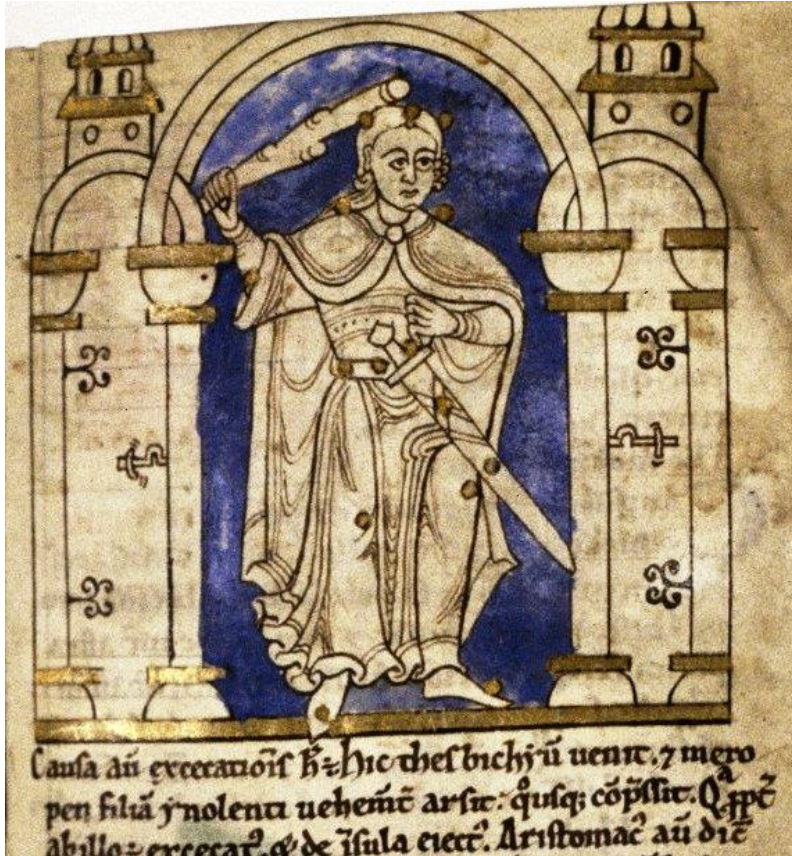 Causa au̅ excecatio̅is h̅ ÷ hic thesbichi u̅ uenit. ⁊ mero
pen filia̅ ẏ nolenti uehem̅t̅ arsit. q̊usq; co̅p̅ssit. Q
ab illo ÷ excecat᷒. & de i̅sula eiect᷒. Aristomac᷒ au̅ dic̅